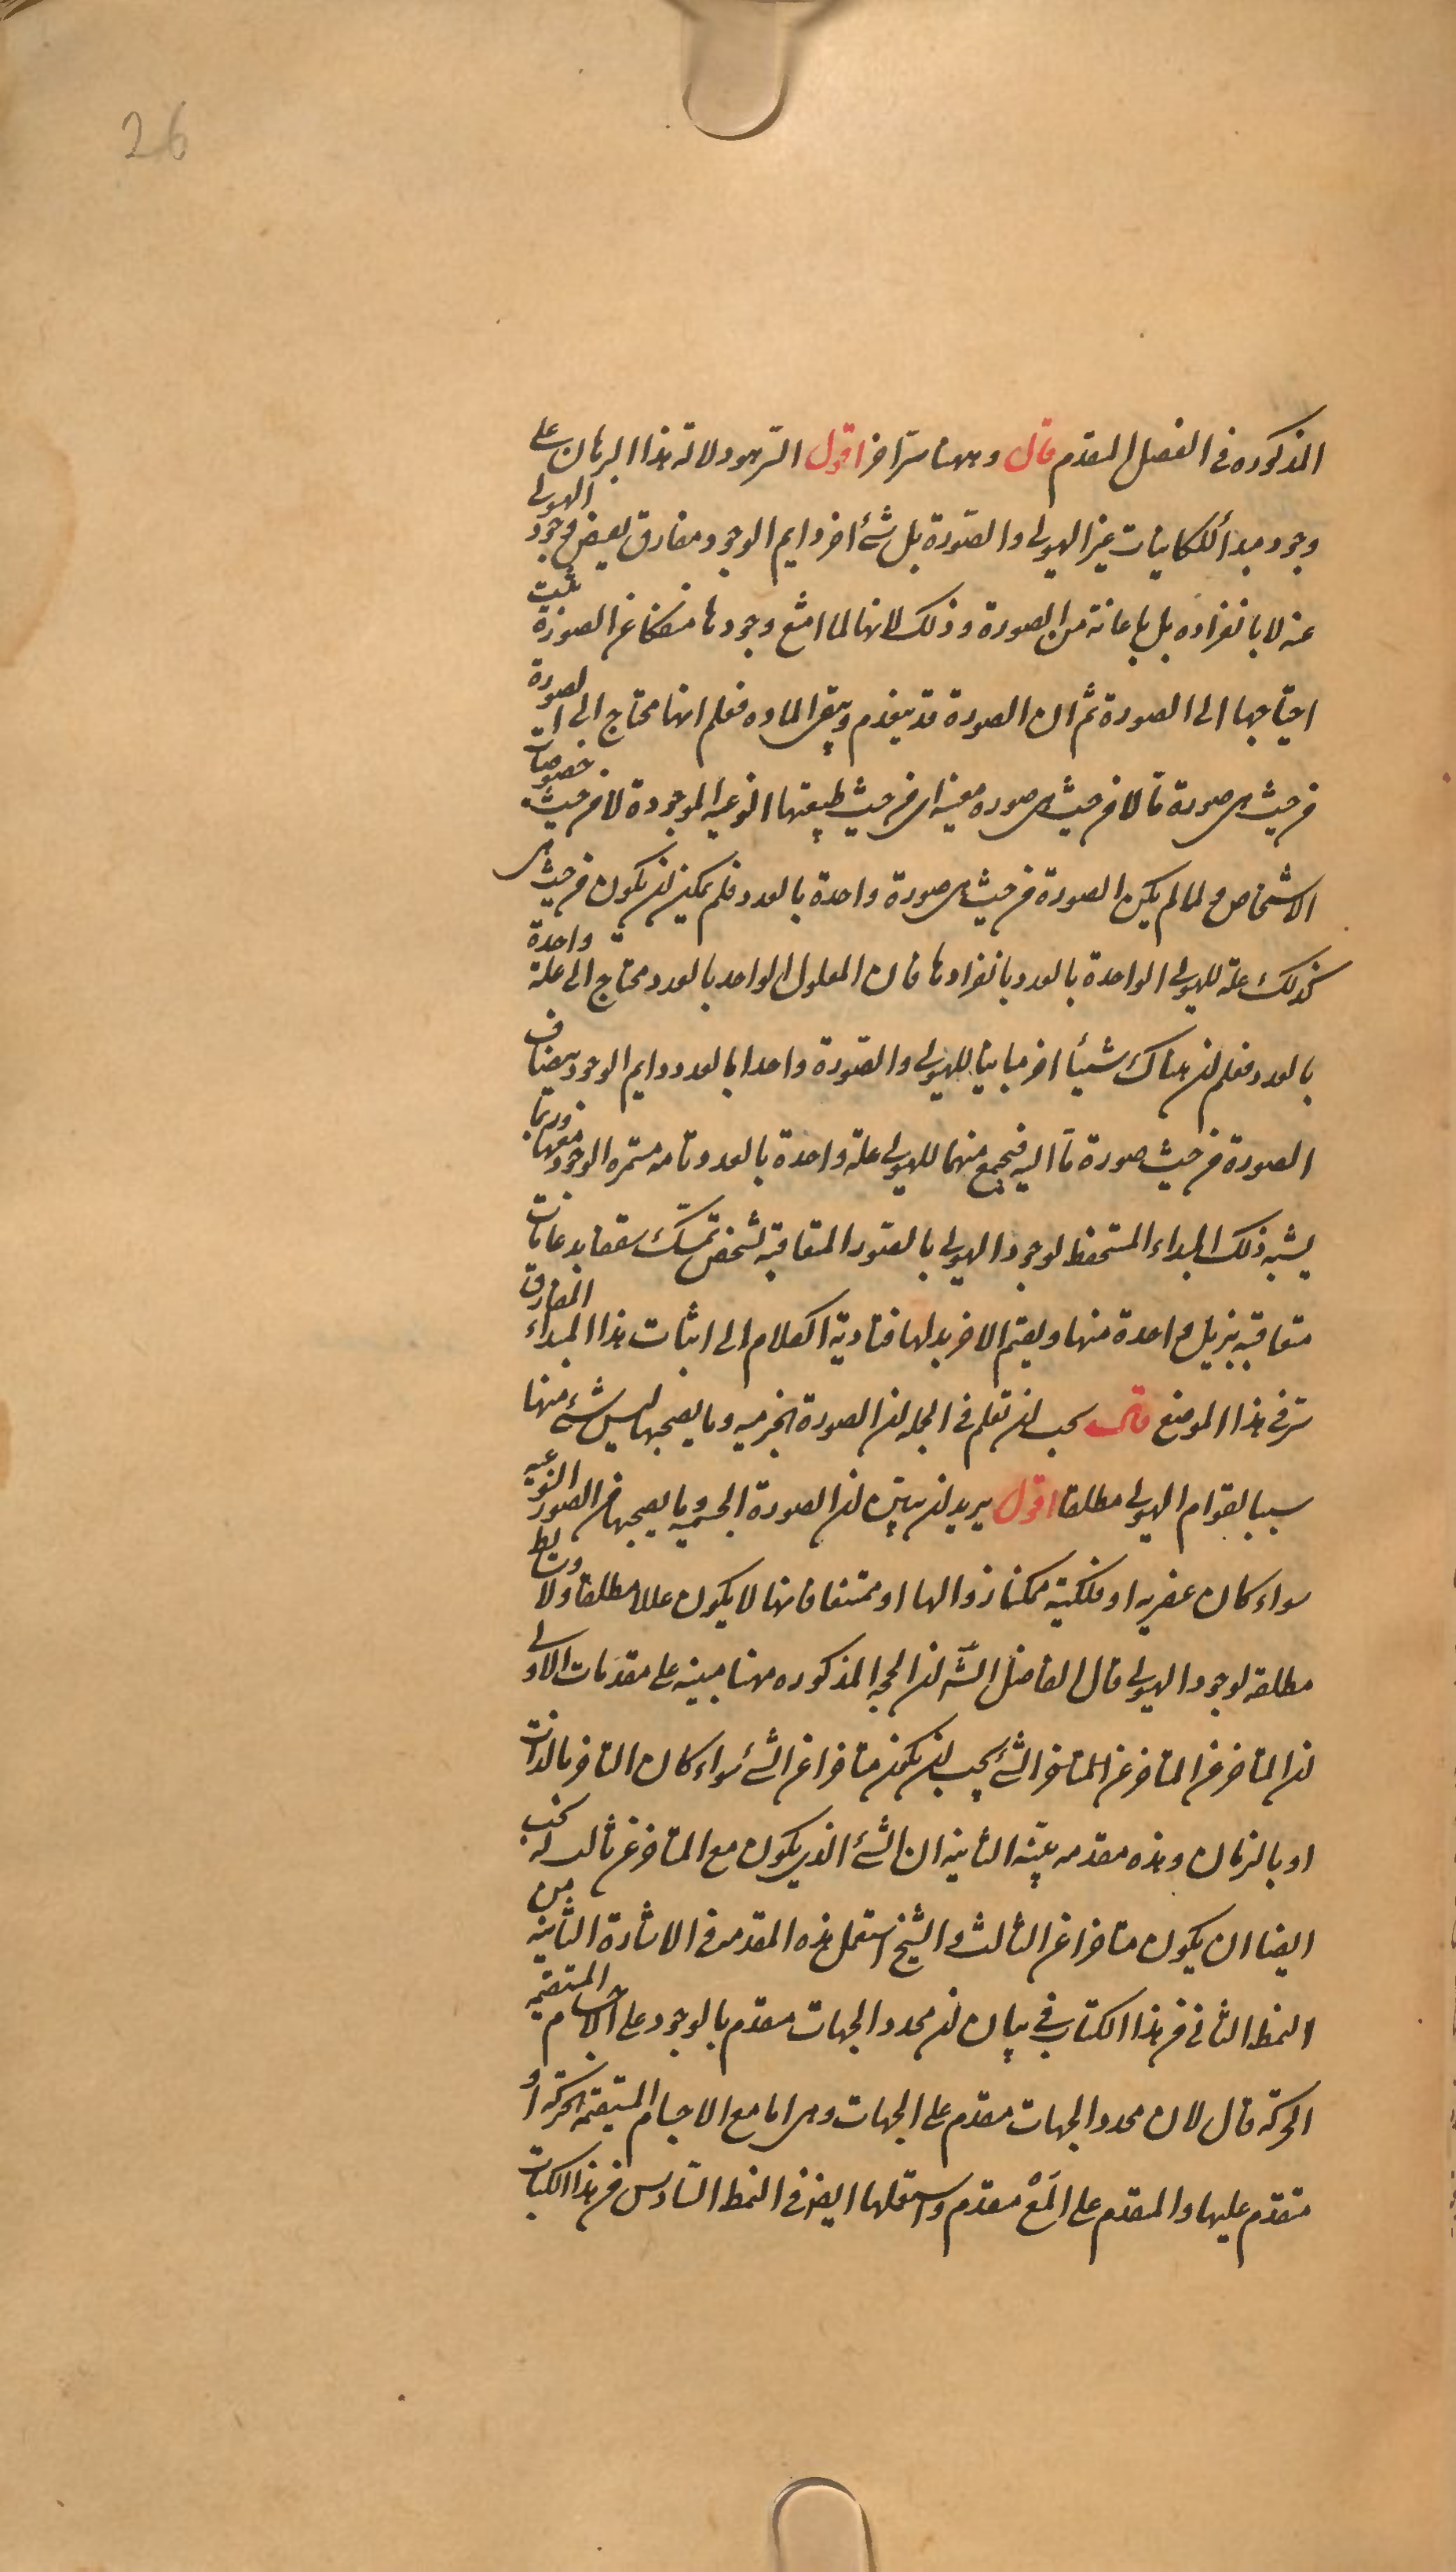 26
المذكوره فى الفصل المقدم قال وههنا سر اخر اقول السر هو دلالة هذا البرهان على
وجود مبدأ للكاينات غير الهيولى والصّورة بل شئ اخر دايم الوجود مفارق يفيض وجود الهيولى
عنه لا بانفراده بل باعانة من الصورة وذلك لانها لما امتنع وجودها منفكا عن الصورة ثبت
احتياجها الى الصورة ثم ان الصورة قد ينعدم ويبقى الماده فعلم انها محتاج الى الصورة
من حيث هى صورة ما لا من حيث هى صوره معينه اى من حيث طبيعتها النوعيه الموجودة لا من حيث خصوصيات
الاشخاص ولما لم يكن الصورة من حيث هى صورة واحدة بالعدد فلم يمكن ان يكون من حيث هى
كذلك علة للهيولى الواحدة بالعدد بانفرادها فان المعلول الواحد بالعدد محتاج الى علة واحدة
بالعدد فعلم ان هناك شيئا اخر مباينا للهيولى والصّورة واحدا بالعدد دايم الوجود يضاف
الصورة من حيث صورة ما اليه فيجمع منهما للهيولى علة واحدة بالعدد تامه مستمره الوجود معها وربما
يشبه ذلك المبداء المستحفظ لوجود الهيولى بالصور المتعاقبه بشخص تمسّك سقفا بدعامات
متعاقبه يزيل واحدة منها ويقيم الاخر بدلها فتادية الكلام الى اثبات هذا المبداء المفارق
سر فى هذا الموضع قال يجب ان تعلم فى الجمله ان الصورة الجرميه وما يصحبها ليس شئ منها
سببا لقوام الهيولى مطلقا اقول يريد ان يبين ان الصورة الجسميه وما يصحبها من الصور النوعيه
سواء كان عنصريه او فلكية ممكنا زوالها او ممتنعا فانها لا يكون عللا مطلقا ولا وسايط
مطلقه لوجود الهيولى قال الفاضل الشّه ان الحجه المذكوره ههنا مبينه على مقدمات الاولى
ان المتاخر عن المتاخر عن المتاخر الشئ يجب ان يكون متاخرا عن الشئ سواء كان التاخر بالذات
او بالزمان وهذه مقدمه بيّنه الثانيه ان الشئ الذى يكون مع المتاخر عن ثالث يجب
ايضا ان يكون متاخرا عن الثالث والشيخ استعمل هذه المقدمه فى الاشارة الثانيه من
النمط الثانى من هذا الكتاب فى بيان ان محدد الجهات مقدم بالوجود على الاجسام المستقيمه
الحركه قال لان محدد الجهات مقدم على الجهات وهى اما مع الاجسام المستقيمه الحركه او
متقدم عليها والمقدم على المَعْ مقدم واستعملها ايضا فى النمط السّادس من هذا الكتاب